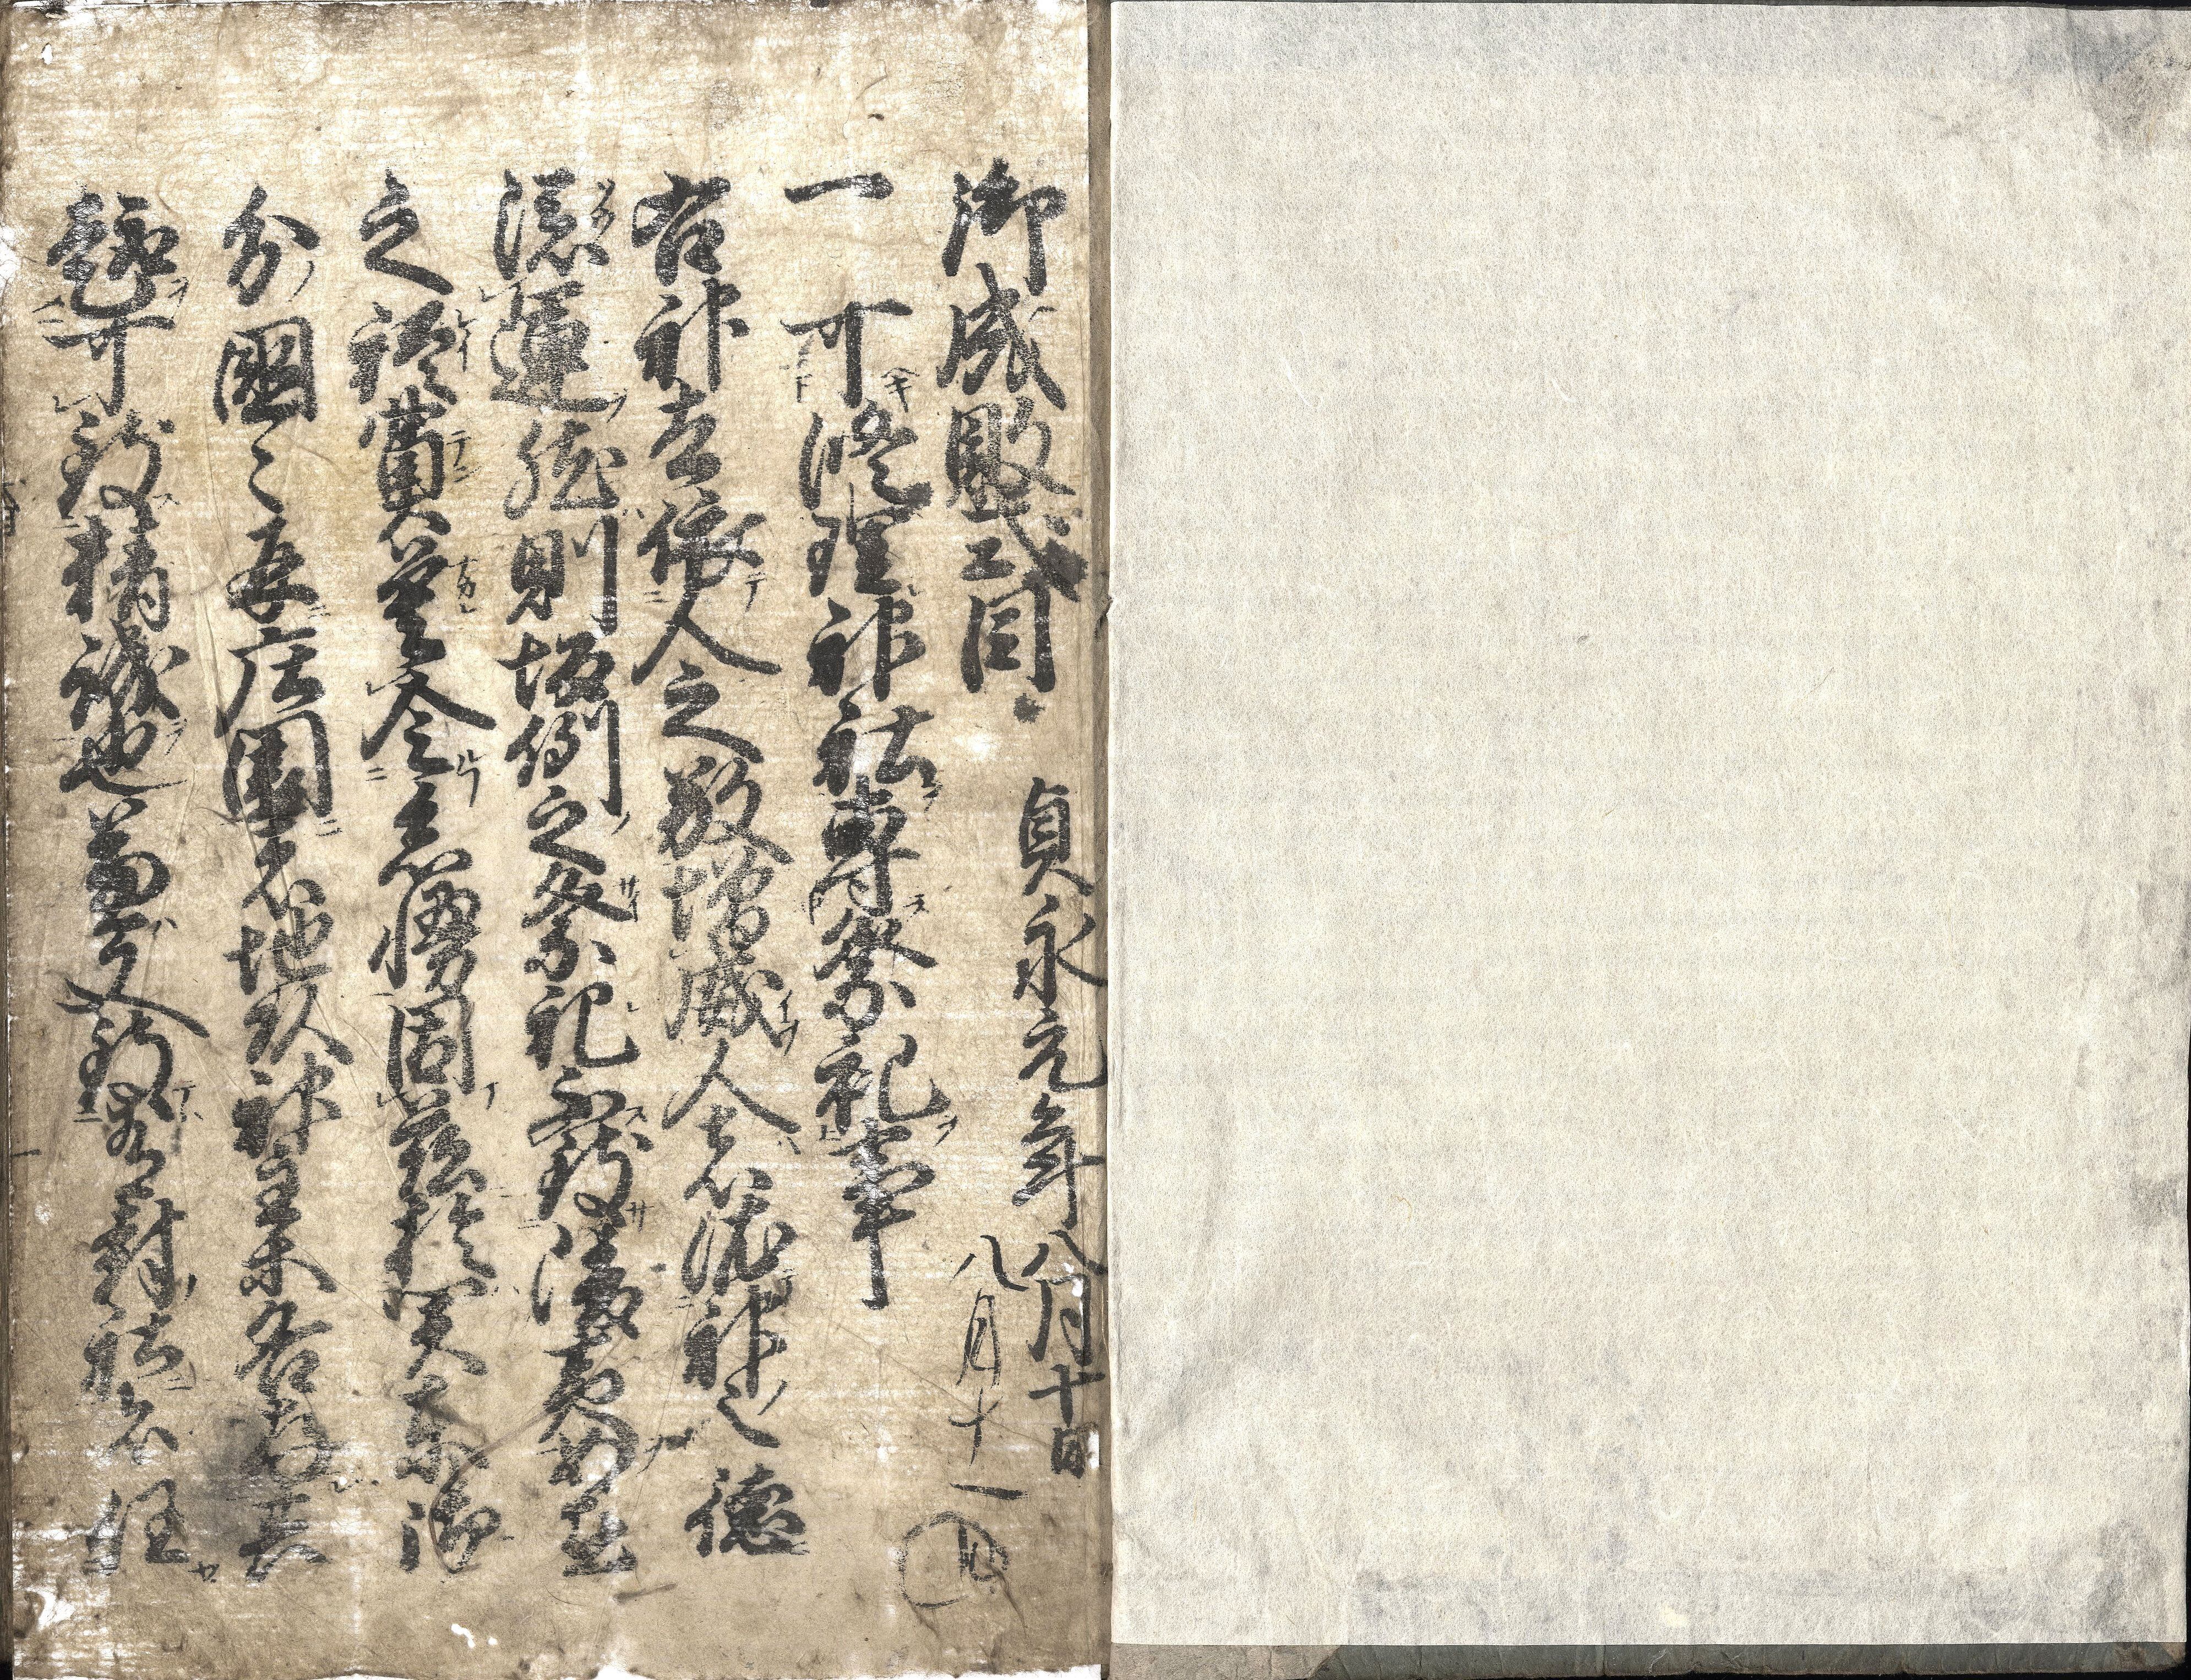 御成敗式目
貞永元年八月十日
八月十一
一 可修理神社専祭祀事
右神者依人之敬増威人者依神之徳
添運然則恒例之祭祀不致陵夷如在
之礼奠莫令怠慢因茲於関東御
分国々并庄園者地頭神主等各存其
趣可致精誠也兼又至有封社者任